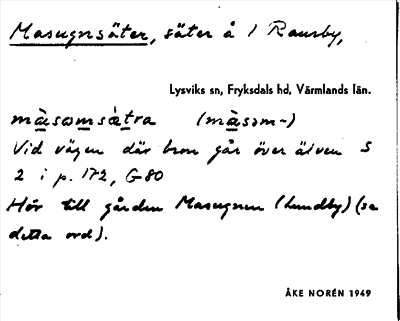 Masugnsäter, säter å 1 Ransby,
Lysviks sn, Fryksdals hd, Värmlands län.
màsomsàtra (màsəm-)
Vid vägen där bron går över älven S
2 i p. 172, G 80
Hör till gården Masugnen (Lundby) (se
detta ord).
ÅKE NORÉN 1949